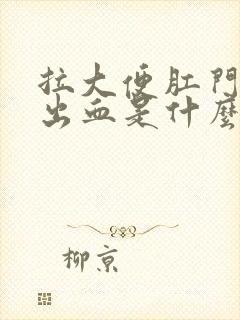 拉大便肛門
出血是什麼
柳京